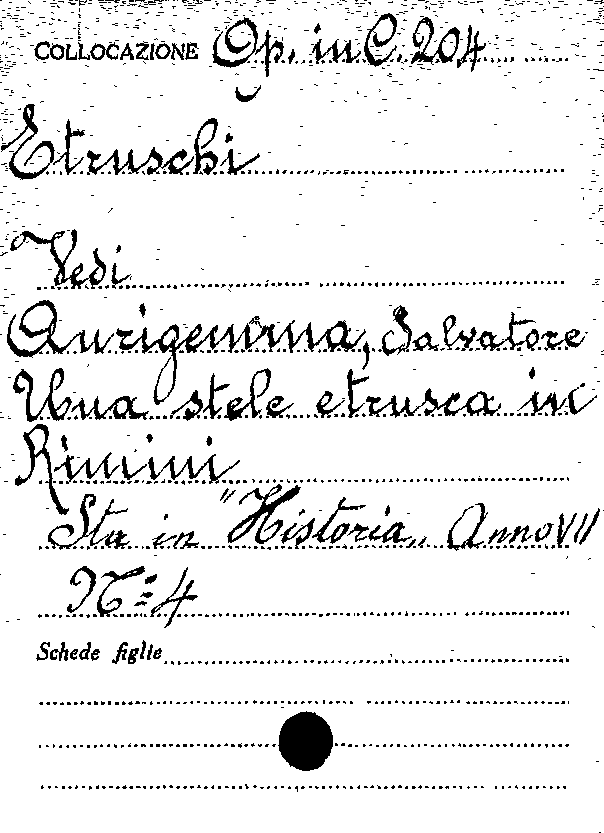 COLLOCAZIONE Op. in C. 204
Etruschi
Vedi
Aurigemma, Salvatore
Una stele etrusca in
Rimini
Sta in "Historia„ Anno VII
N.º 4
Schede figlie